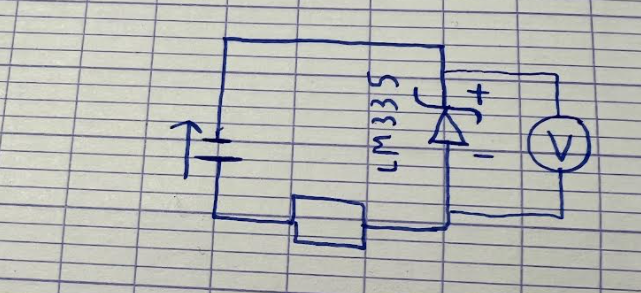 LM335
+
-
V